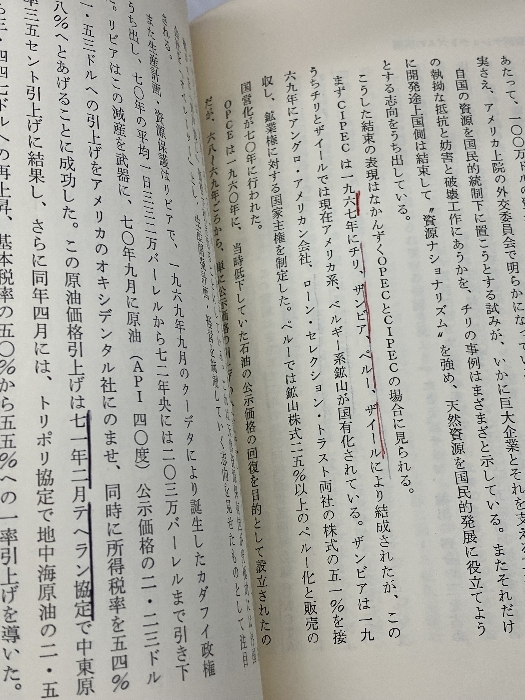 あたって、一〇〇万ドル
実さえ、アメリカ上院の外交委員会で明らかになって
自国の資源を国民的統制下に置こうとする試みが、いかに巨大企業とそれを支え
の執拗な抵抗と妨害と破壊工作にあうかを、チリの事例はまざまざと示している。またそれだけ
に開発途上国側は結束して〝資源ナショナリズム〟を強め、天然資源を国民的発展に役立てよう
とする志向をうち出している。
こうした結束の表現はなかんずくOPECとCIPECの場合に見られる。
まずCIPECは一九六七年にチリ、ザンビア、ペルー、ザイールにより結成されたが、この
うちチリとザイールでは現在アメリカ系、ベルギー系鉱山が国有化されている。ザンビアは一九
六九年にアングロ・アメリカン会社、ローン・セレクション・トラスト両社の株式の五一%を接
収し、鉱業権に対する国家主権を制定した。ペルーでは鉱山株式二五%以上のペルー化と販売の
国営化が七〇年に行われた。
OPCEは一九六〇年に、当時低下していた石油の公示価格の回復を目的として設立されたの
だが、六八―六九年ごろから、単に公示価格の
される。
また生産計画・資源保護はリビアで、一九六九年九月のクーデタにより誕生したカダフィ政権
うち出し、七〇年の平均一日三三二万バーレルから七二年央には二〇三万バーレルまで引き下
。リビアはこの減産を武器に、七〇年九月に原油（API四〇度）公示価格の二・二三ドル
・五三ドルへの引上げをアメリカのオキシデンタル社にのませ、同時に所得税率を五四%
八%へとあげることに成功した。この原油価格引上げは七一年二月テヘラン協定で中東原
年三五セント引上げに結果し、さらに同年四月には、トリポリ協定で地中海原油の二・五
三・四四七ドルへの再上昇、基本税率の五〇%から五五%への一率引上げを導いた。